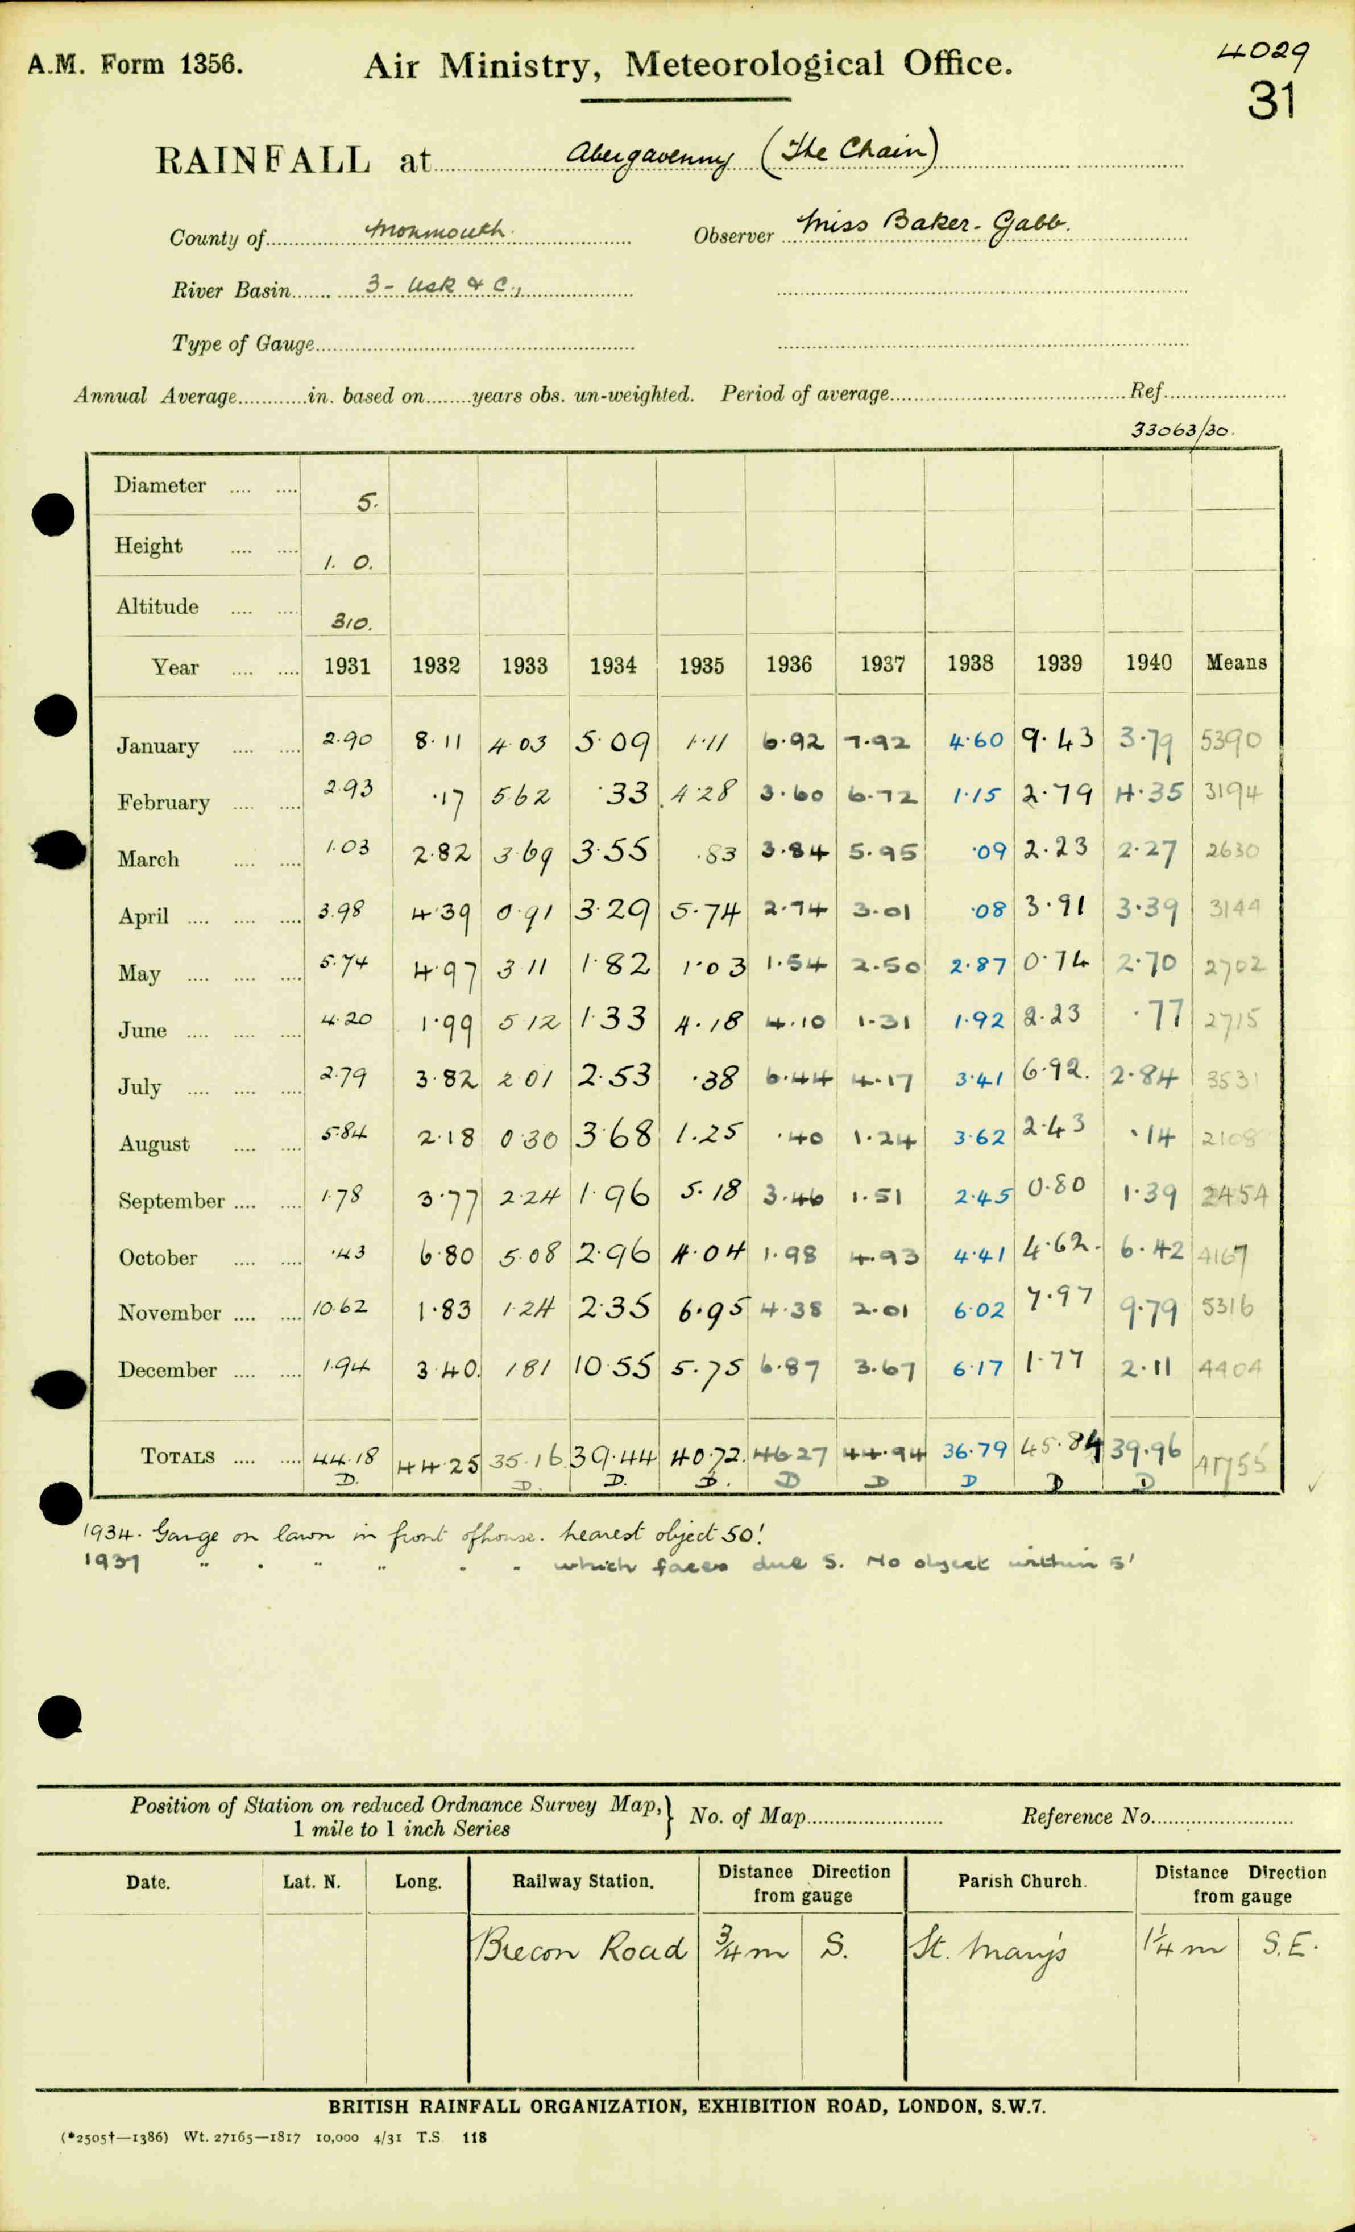 A.M. Form 1356. Air Ministry, Meteorological Office. 4029
31
RAINFALL at Abergavenny (The Chain)
County of Monmouth. Observer Miss Baker-Gabb.
River Basin 3 - Usk & C.,
Type of Gauge
Annual Average in. based on years obs. un-weighted. Period of average Ref.
33063/30.
Diameter 5.
Height 1. 0.
Altitude 310.
Year 1931 1932 1933 1934 1935 1936 1937 1938 1939 1940 Means
January 2.90 8.11 4.03 5.09 1.11 6.92 7.92 4.60 9.43 3.79 5390
February 2.93 .17 5.62 .33 4.28 3.60 6.72 1.15 2.79 4.35 3194
March 1.03 2.82 3.69 3.55 .83 3.84 5.95 .09 2.23 2.27 2630
April 3.98 4.39 0.91 3.29 5.74 2.74 3.01 .08 3.91 3.39 3144
May 5.74 4.97 3.11 1.82 1.03 1.54 2.50 2.87 0.74 2.70 2702
June 4.20 1.99 5.12 1.33 4.18 4.10 1.31 1.92 2.23 .77 2715
July 2.79 3.82 2.01 2.53 .38 6.44 4.17 3.41 6.92. 2.84 3531
August 5.84 2.18 0.30 3.68 1.25 .40 1.24 3.62 2.43 .14 2108
September 1.78 3.77 2.24 1.96 5.18 3.46 1.51 2.45 0.80 1.39 2454
October .43 6.80 5.08 2.96 4.04 1.98 4.93 4.41 4.62. 6.42 4167
November 10.62 1.83 1.24 2.35 6.95 4.38 2.01 6.02 7.97 9.79 5316
December 1.94 3.40. 1.81 10.55 5.75 6.87 3.67 6.17 1.77 2.11 4404
TOTALS 44.18 44.25 35.16 39.44 40.72. 46.27 44.94 36.79 45.84 39.96 41755
D. D. D. D. D D D D D
1934. Gauge on lawn in front of house. nearest object 50'.
1937 " " " " " " which faces due S. No object within 5'
Position of Station on reduced Ordnance Survey Map, } No. of Map Reference No.
1 mile to 1 inch Series
Date. Lat. N. Long. Railway Station. Distance Direction from gauge Parish Church. Distance Direction from gauge
Brecon Road 3/4 m S. St. Mary's 1 1/4 m S.E.
BRITISH RAINFALL ORGANIZATION, EXHIBITION ROAD, LONDON, S.W.7.
(*2505†—1386) Wt. 27165—1817 10,000 4/31 T.S. 118